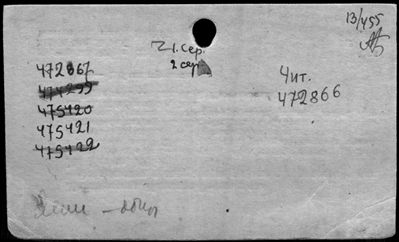 13/455
АБ
1. сер.
2 сер
Чит.
472866
472867
474299
475420
475421
475422